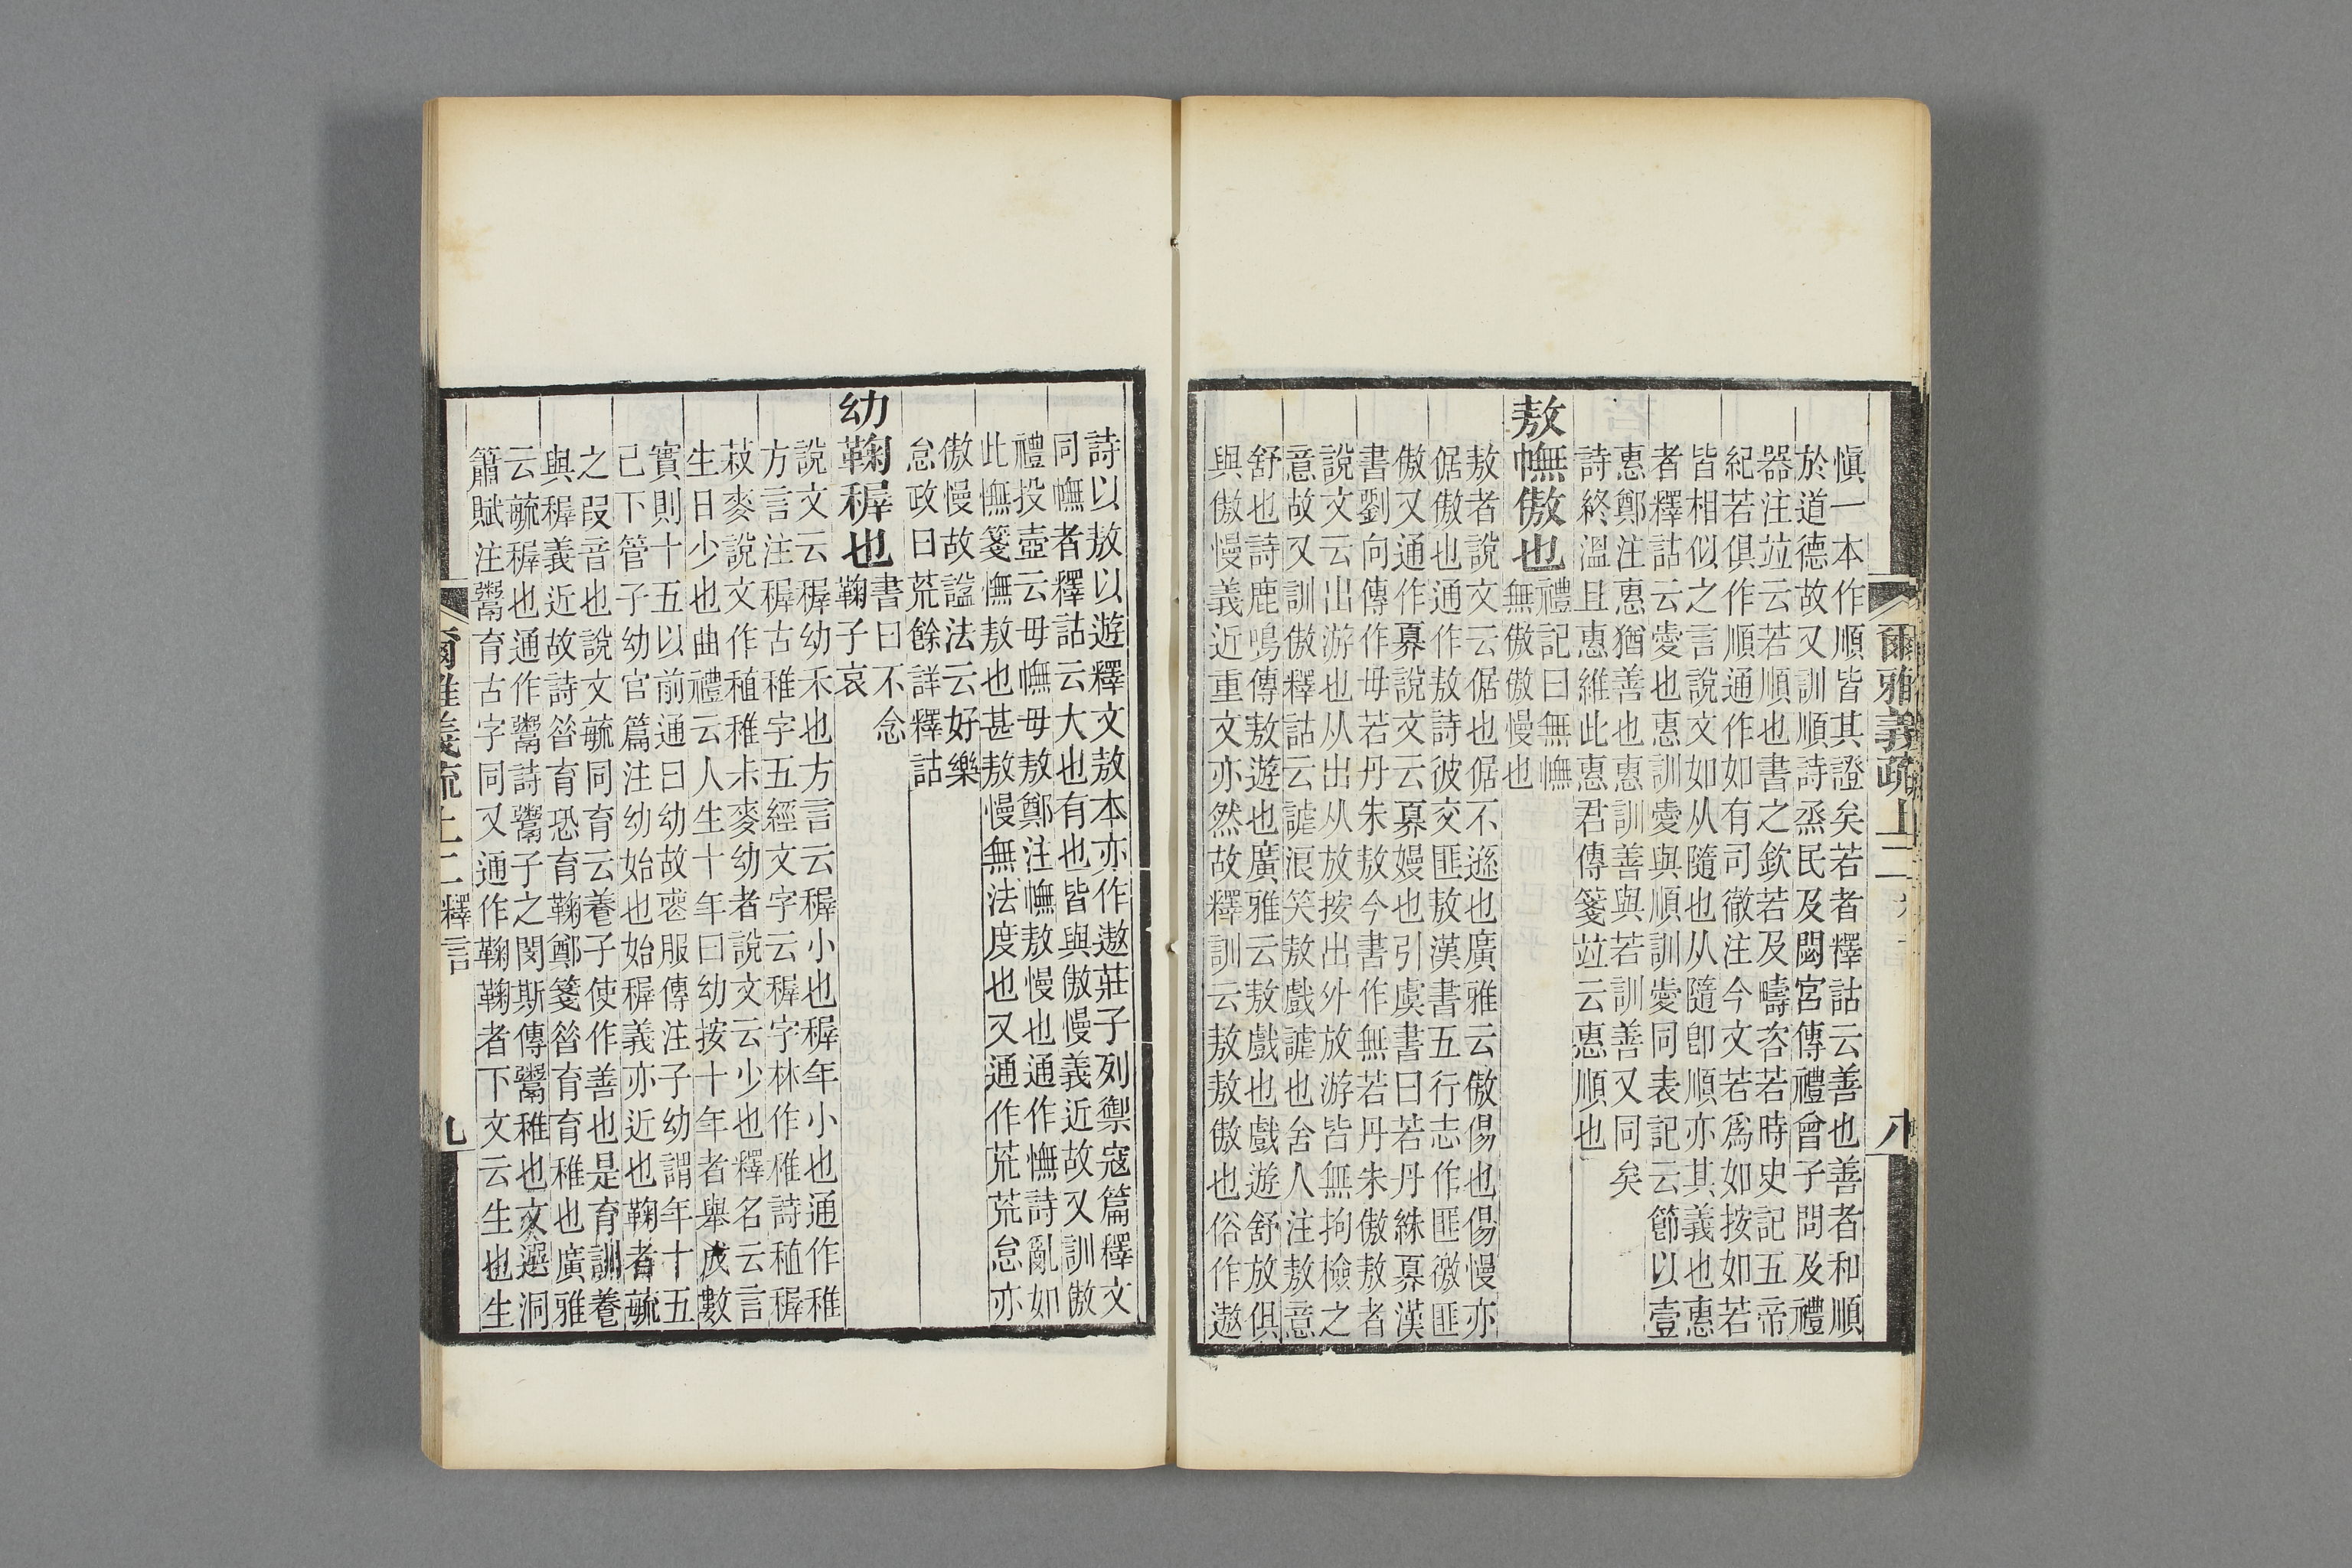 爾雅義疏上二
八
愼一本作順皆其證矣若者釋詁云善也善者和順
於道德故又訓順詩烝民及閟宮傳禮曾子問及禮
器注竝云若順也書之欽若及疇咨若時史記五帝
紀若俱作順通作如有司徹注今文若爲如按如若
皆相似之言說文如从隨也从隨卽順亦其義也惠
者釋詁云愛也惠訓愛與順訓愛同表記云節以壹
惠鄭注惠猶善也惠訓善與若訓善又同矣
詩終溫且惠維此惠君傳箋竝云惠順也
敖幠傲也
禮記曰無幠
無傲傲慢也
敖者說文云倨也倨不遜也廣雅云傲傷也傷慢亦
倨傲也通作敖詩彼交匪敖漢書五行志作匪徼匪
傲又通作奡說文云奡嫚也引虞書曰若丹絑奡漢
書劉向傳作毋若丹朱敖今書作無若丹朱傲敖者
說文云出游也从出从放按出外放游皆無拘檢之
意故又訓傲釋詁云謔浪笑敖戲謔也舍人注敖意
舒也詩鹿鳴傳敖遊也廣雅云敖戲也戲遊舒放俱
與傲慢義近重文亦然故釋訓云敖敖傲也俗作遨
詩以敖以遊釋文敖本亦作遨莊子列禦寇篇釋文
同幠者釋詁云大也有也皆與傲慢義近故又訓傲
禮投壺云毋幠毋敖鄭注幠敖慢也通作憮詩亂如
此憮箋憮敖也甚敖慢無法度也又通作荒荒怠亦
傲慢故諡法云好樂
怠政曰荒餘詳釋詁
幼鞠稺也
書曰不念
鞠子哀
說文云稺幼禾也方言云稺小也稺年小也通作稚
方言注稺古稚字五經文字云稺字林作稚詩稙稺
菽麥說文作稙稚尗麥幼者說文云少也釋名云言
生日少也曲禮云人生十年曰幼按十年者舉成數
實則十五以前通曰幼故喪服傳注子幼謂年十五
已下管子幼官篇注幼始也始稺義亦近也鞠者毓
之叚音也說文毓同育云養子使作善也是育訓養
與稺義近故詩昝育恐育鞠鄭箋昝育育稚也廣雅
云毓稺也通作鬻詩鬻子之閔斯傳鬻稚也文選洞
簫賦注鬻育古字同又通作鞠鞠者下文云生也生
爾雅義疏上二 釋言
九